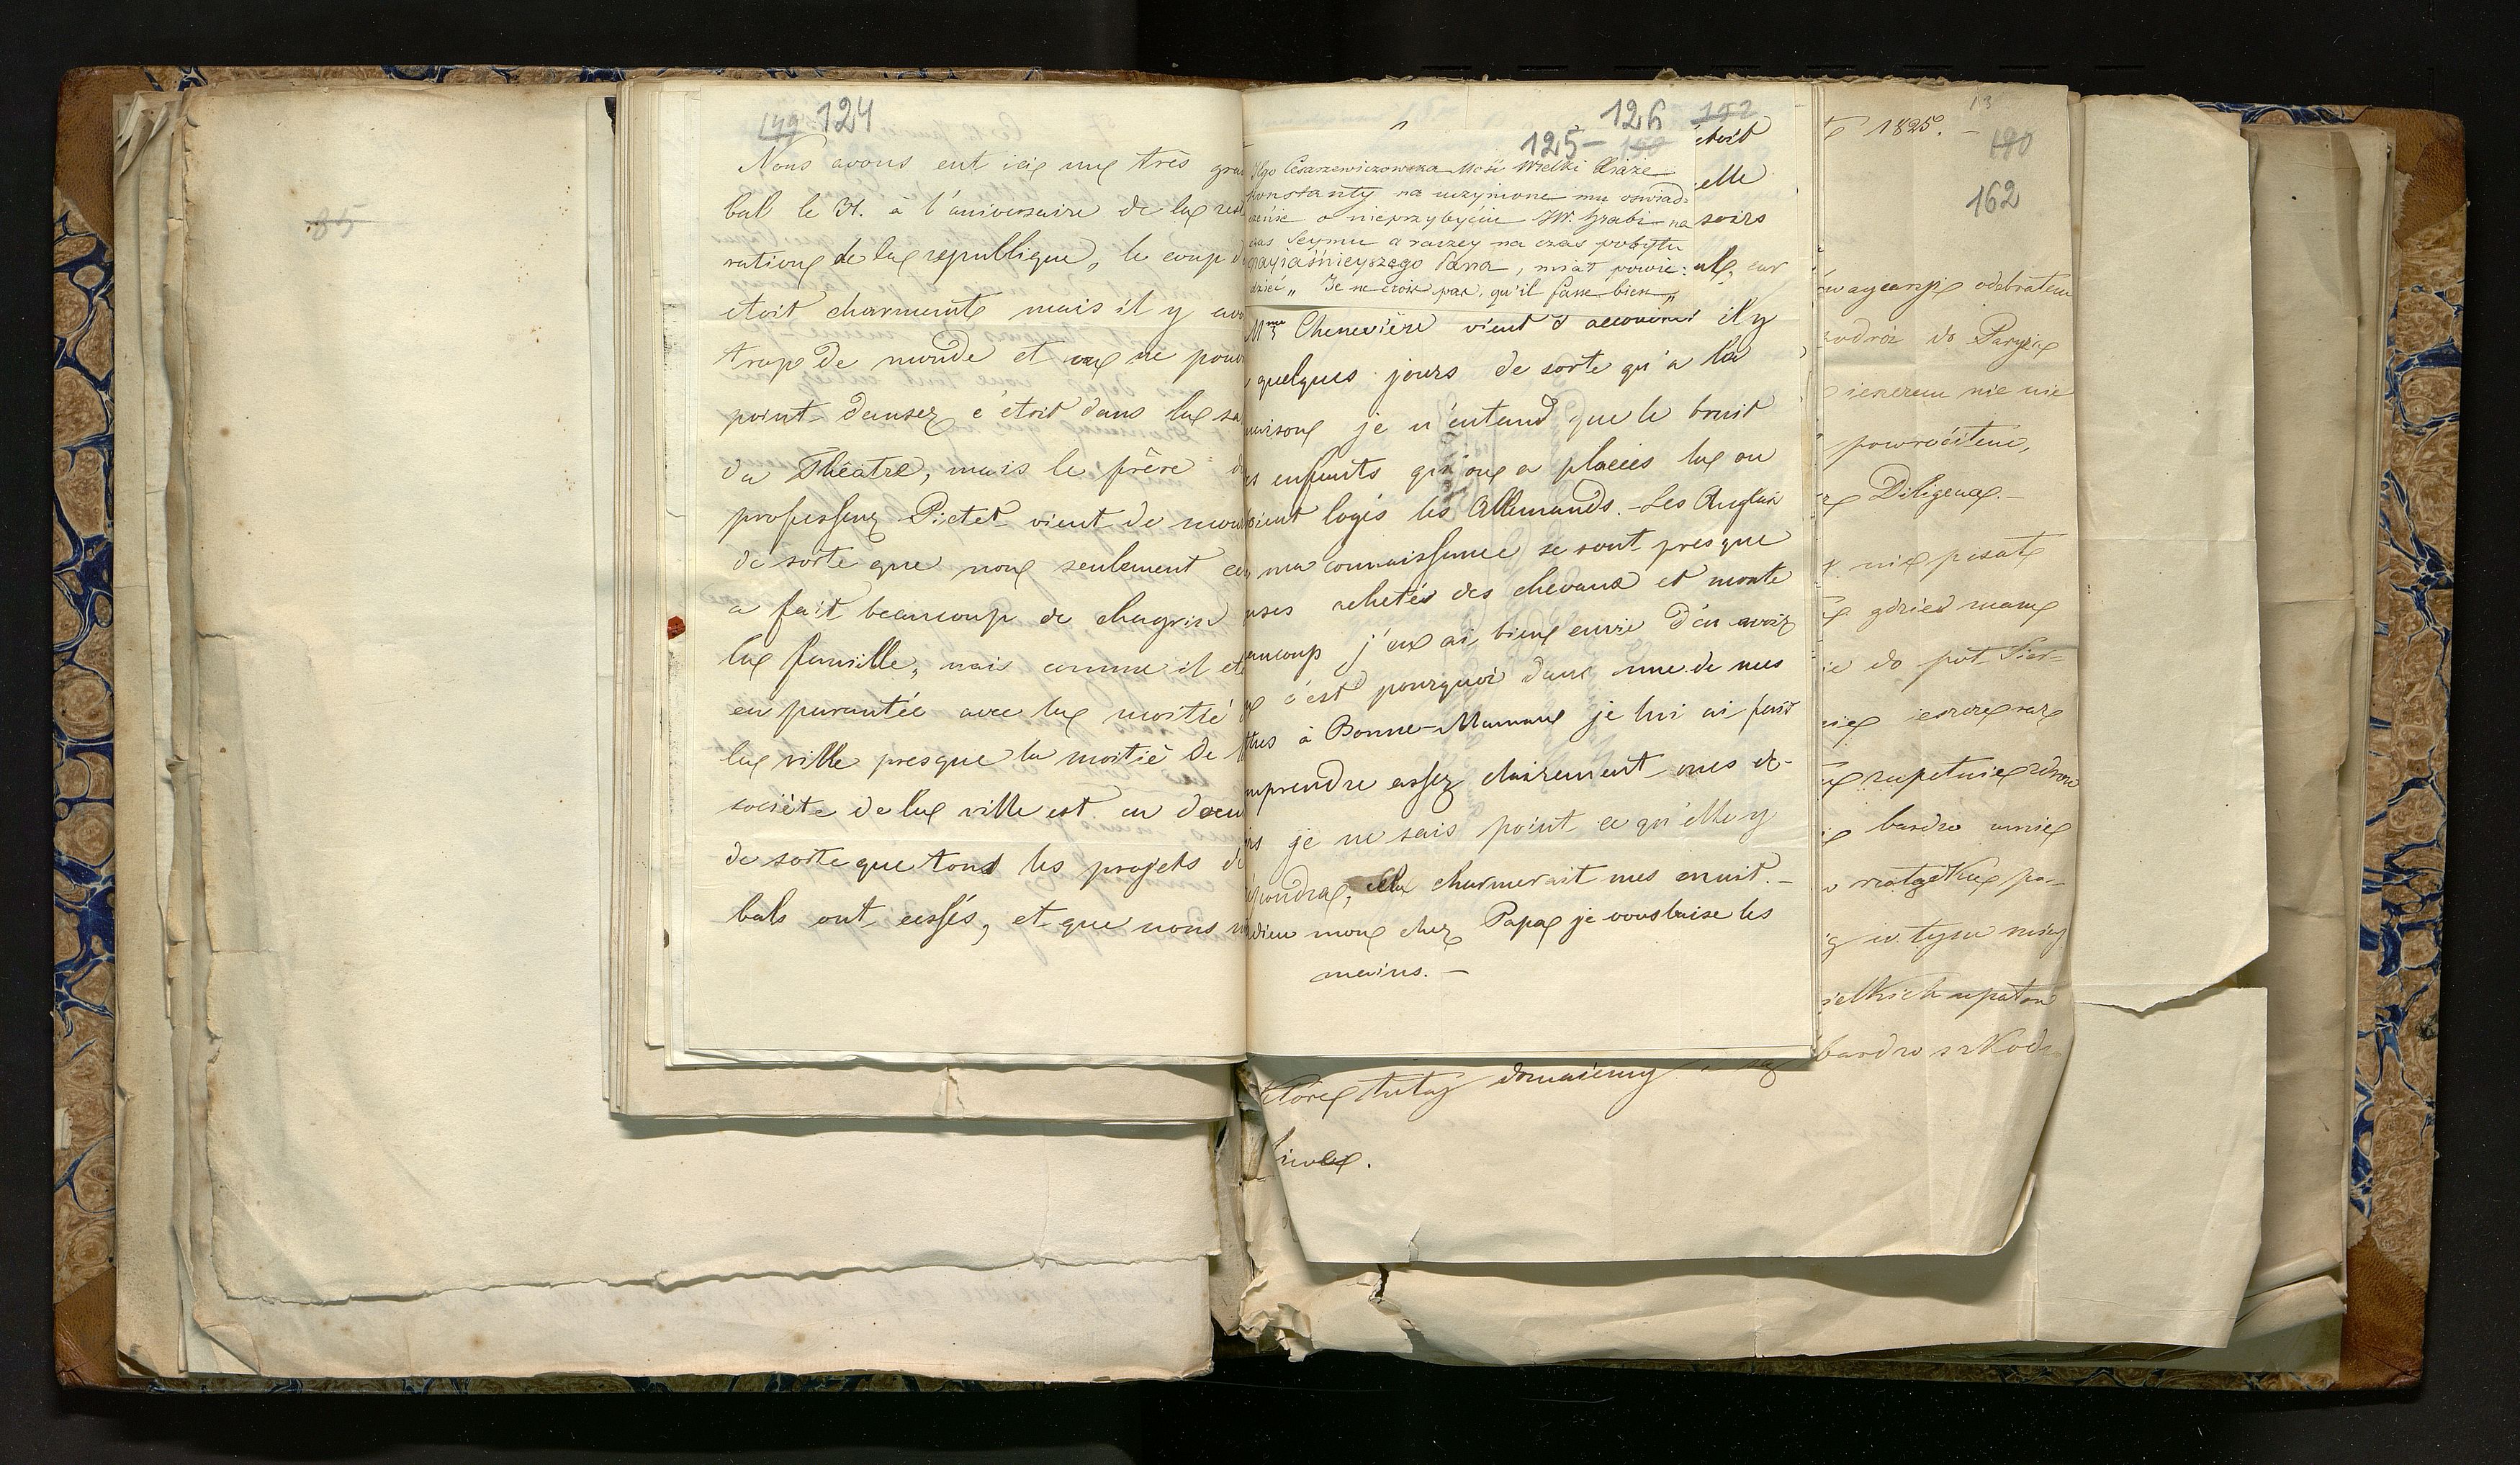 85
149 124
Nous avons eut icie une très gra
bal le 31. à l'aniversaire de la rest
ration de la republique, le coup d
etoit charmente mais il y avo
trop de monde et on ne pouv
point danser c'etoit dans la sa
du Théatre, mais le frère d
professeur Pictet vient de mou
de sorte que non seulement ce
a fait beaucoup de chagrin
la famille, mais comme il et
en parantée avec la moitié
la ville presque la moitié de
societé de la ville est en deu
de sorte que tout les projets d
bals ont cessés, et que nous n
126 152
125-
Jégo Cesarzewiczowska Mość Wielki Xiąże
Konstanty na uczynione mu oswiad:
czenie o nieprzybyciu JW. Hrabi na
czas Seymu a raczey na czas pobytu
Nayiaśnieyszego Pana, miał powie:
dzieć „ Je ne crois pas, qu'il fasse bien „
etoit
elle
soirs
Mme Chenevière vient d'accoucher il y
quelques jours de sorte qu'a la
maison je n'entend que le bruit
es enfants qu'on a placés la ou
oient logés les Allemands. - Les Anglais
ma connaissance se sont presque
achetés des chevaux et monte
aucoup j'en ai bien envie d'en avoir
c'est pourquoi dans une de mes
ttres à Bonne-Maman je lui ai fait
mprendre assez clairement mes
je ne sais point ce qu'elle y
épondra, charmerait mes ennuit. -
dieu mon cher Papa je vous baise les
mains. -
13
1825. -
180
162
odebrałem
podróż do Paryża
ieszcze nic nie
powróciłem,
Diligence. -
nie pisał
gdzieś mam
ie do pół Sier=
ieszcze raz
zupełnie zdrow
bardzo
w tym
bardzo szkod
które tutay